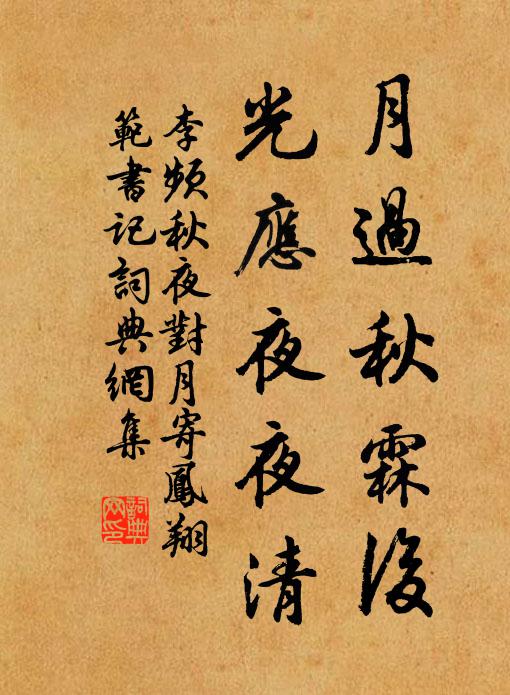 月過秋霖後
光應夜夜清
李頻秋夜對月寄鳳翔
範書記詞典網集
詞典
网印